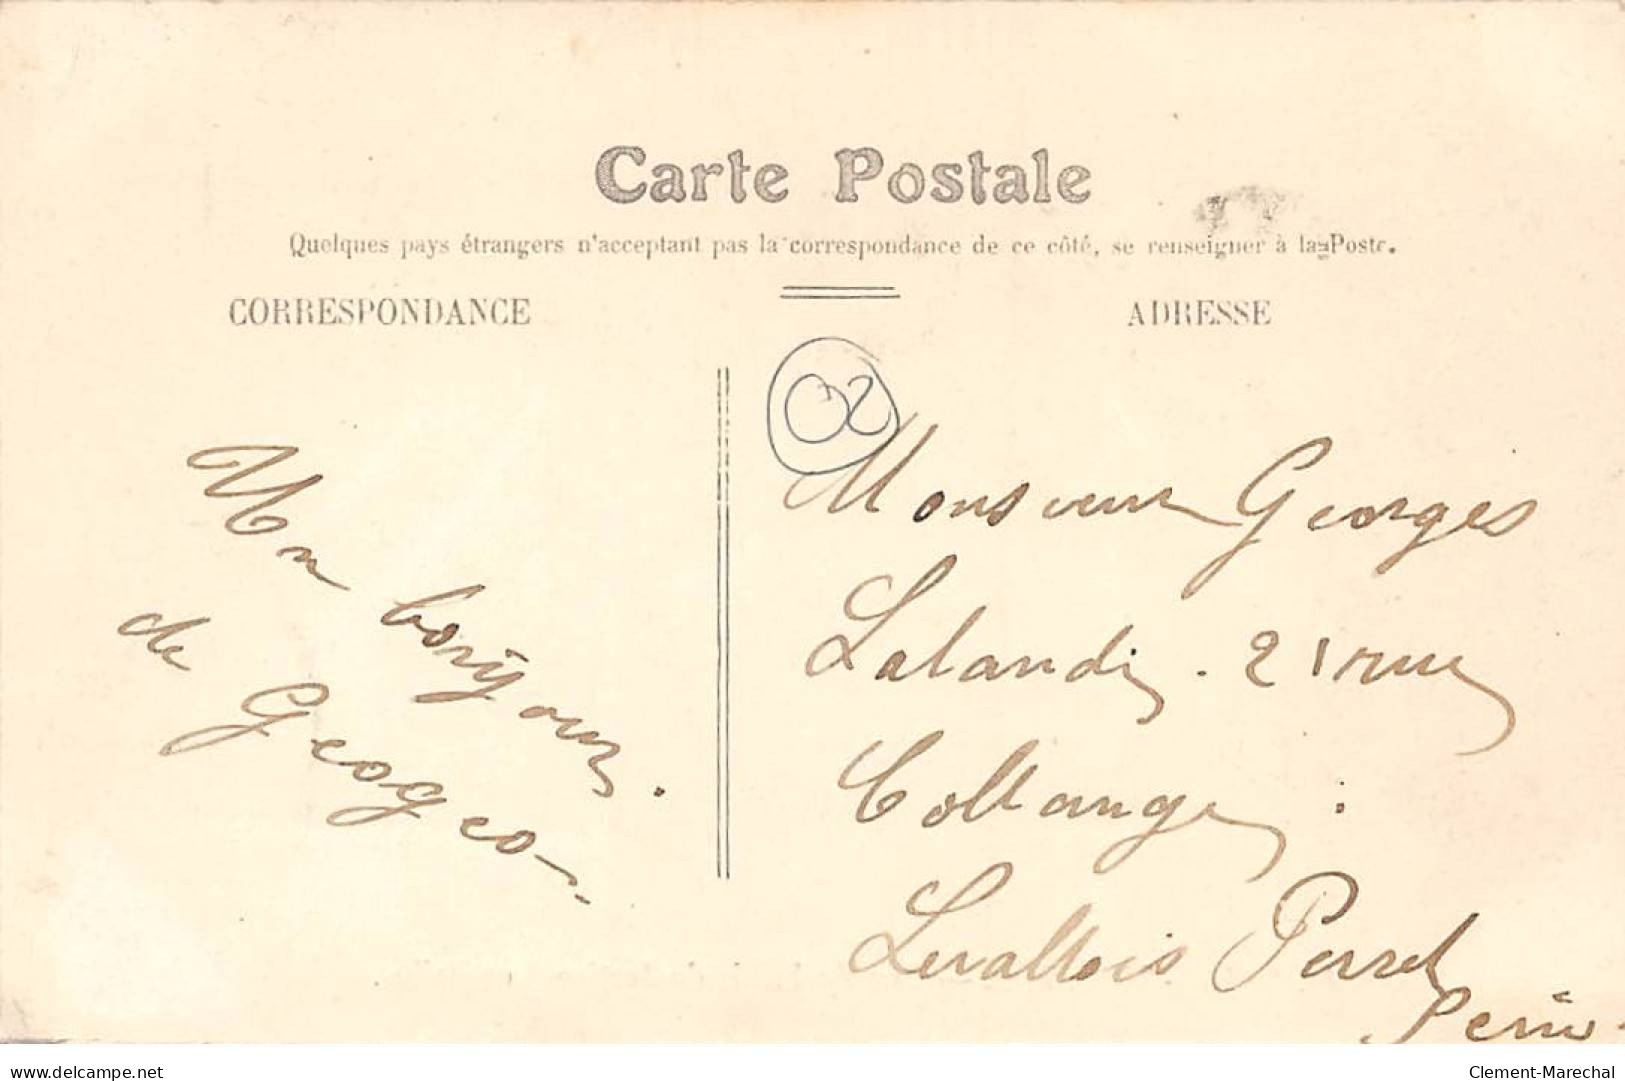 Carte Postale
Quelques pays étrangers n'acceptant pas la correspondance de ce côté, se renseigner à la Poste.
CORRESPONDANCE
ADRESSE
02
Un bonjour.
de Geogeo
Monsieur Georges
Lalandi - 21 rue
Collange :
Levallois Perret
Seine
delcampe.net
Clement-Marechal